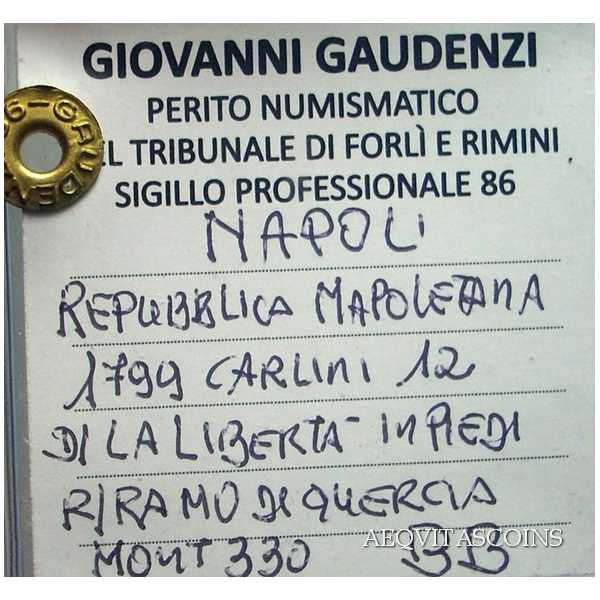 GIOVANNI GAUDENZI
PERITO NUMISMATICO
EL TRIBUNALE DI FORLÌ E RIMINI
SIGILLO PROFESSIONALE 86
NAPOLI
REPUBBLICA NAPOLETANA
1799 CARLINI 12
D/ LA LIBERTA' IN PIEDI
R/ RAMO DI QUERCIA
MONT 330 BB
AEQVITASCOINS
86-GAUDEN